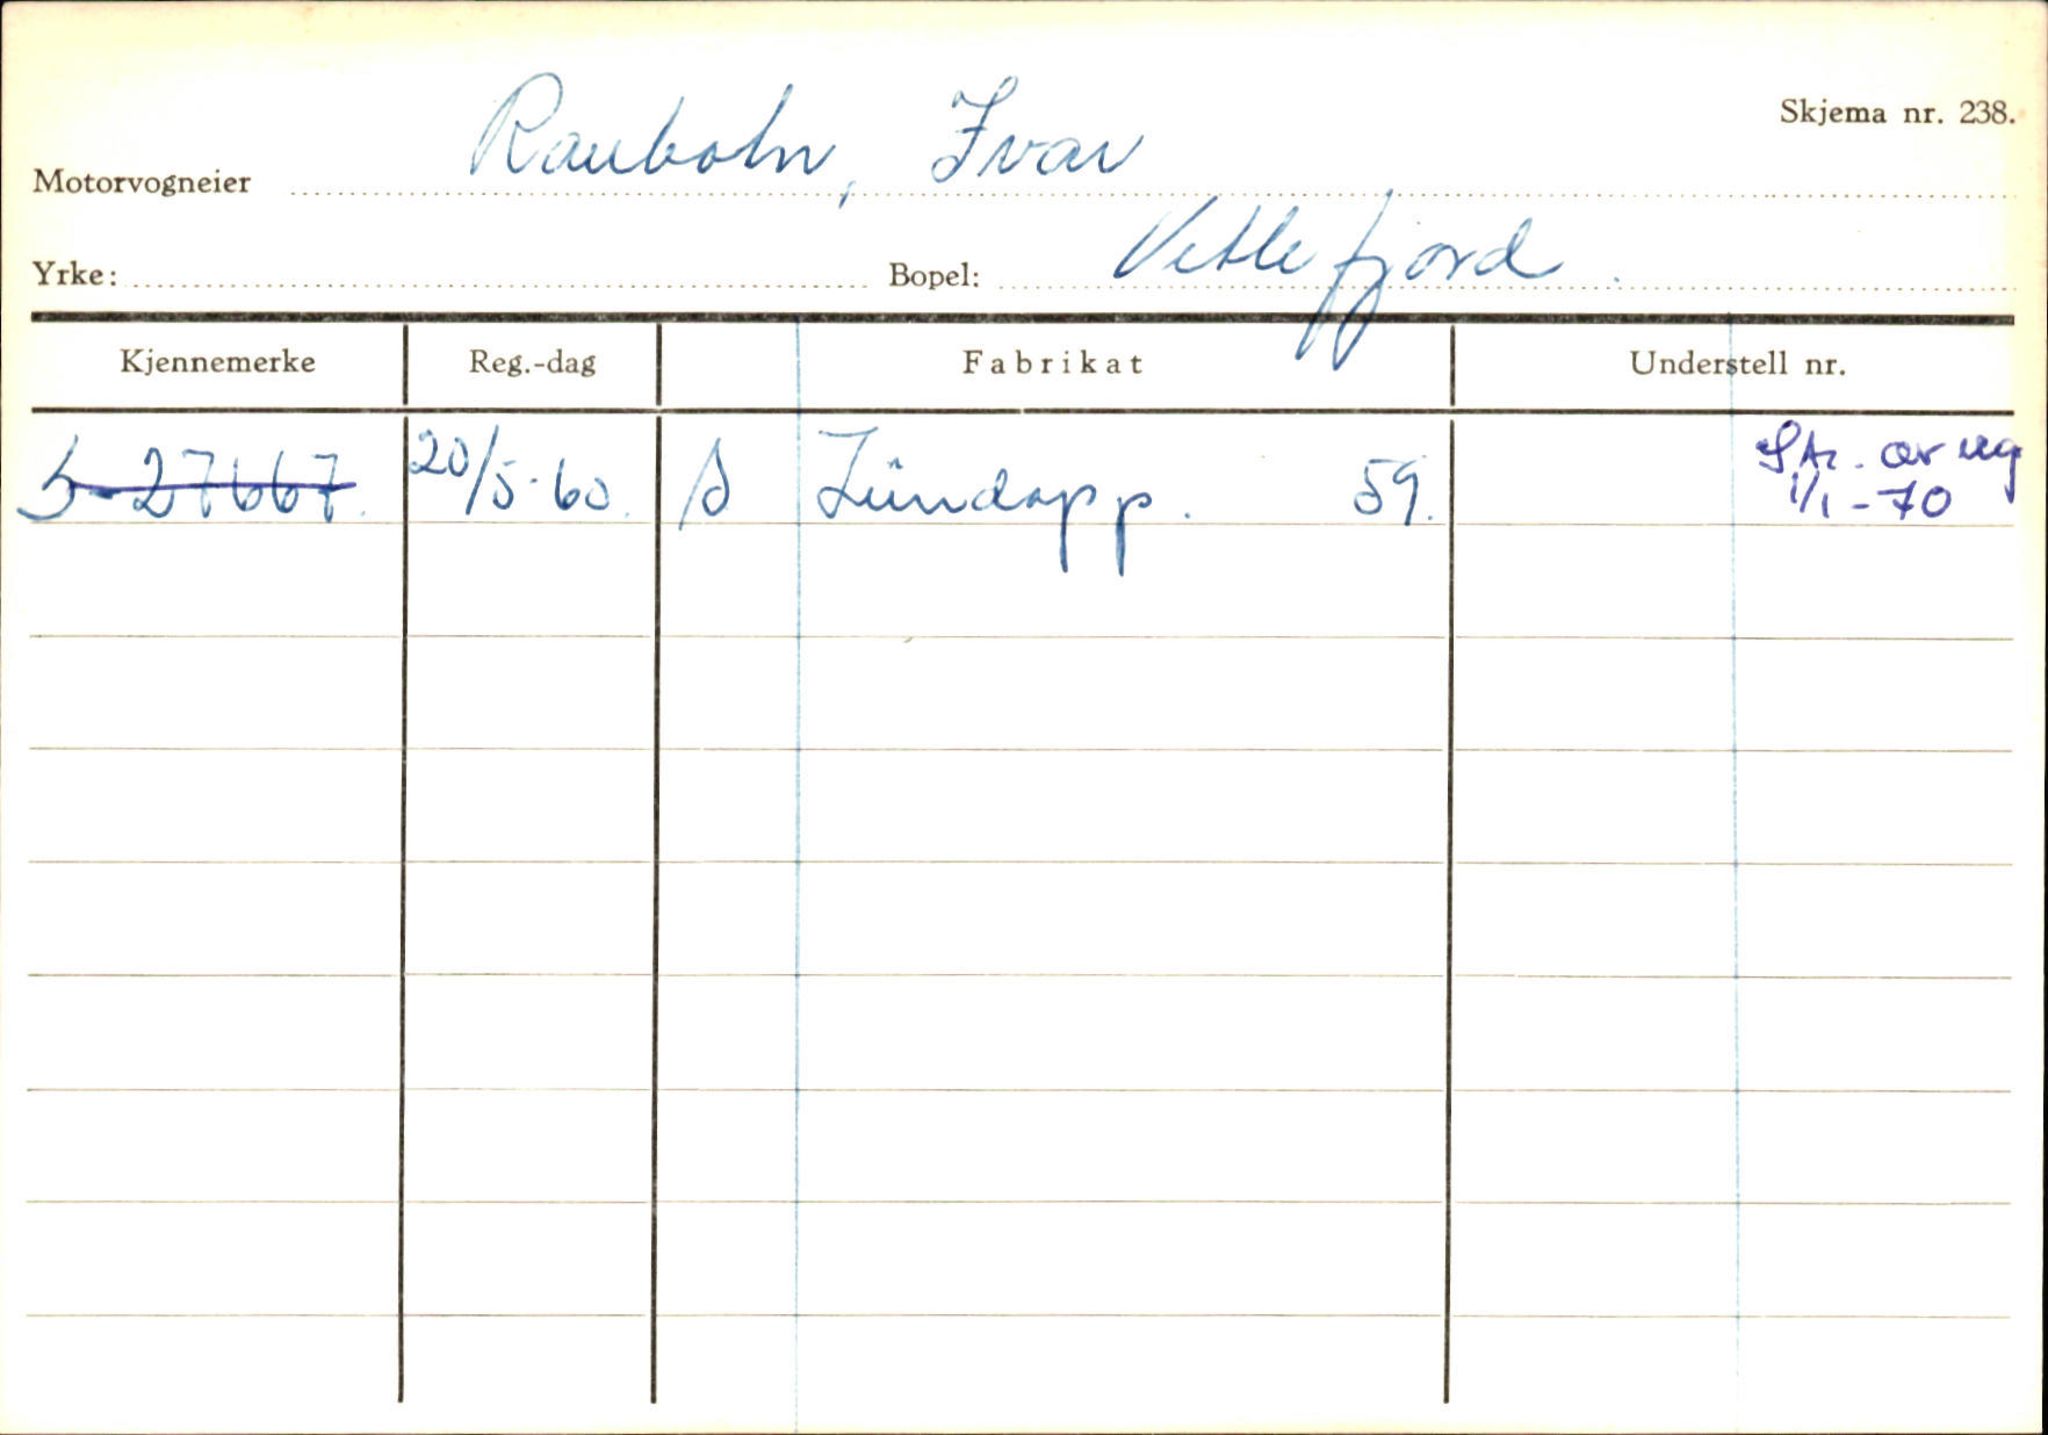 Skjema nr. 238.
Motorvogneier Raubotn, Ivar
Yrke: Bopel: Vetlefjord.
Kjennemerke Reg.-dag Fabrikat Understell nr.
S-27667. 20/5-60. S Zündapp. 59. Str. av reg
1/1-70